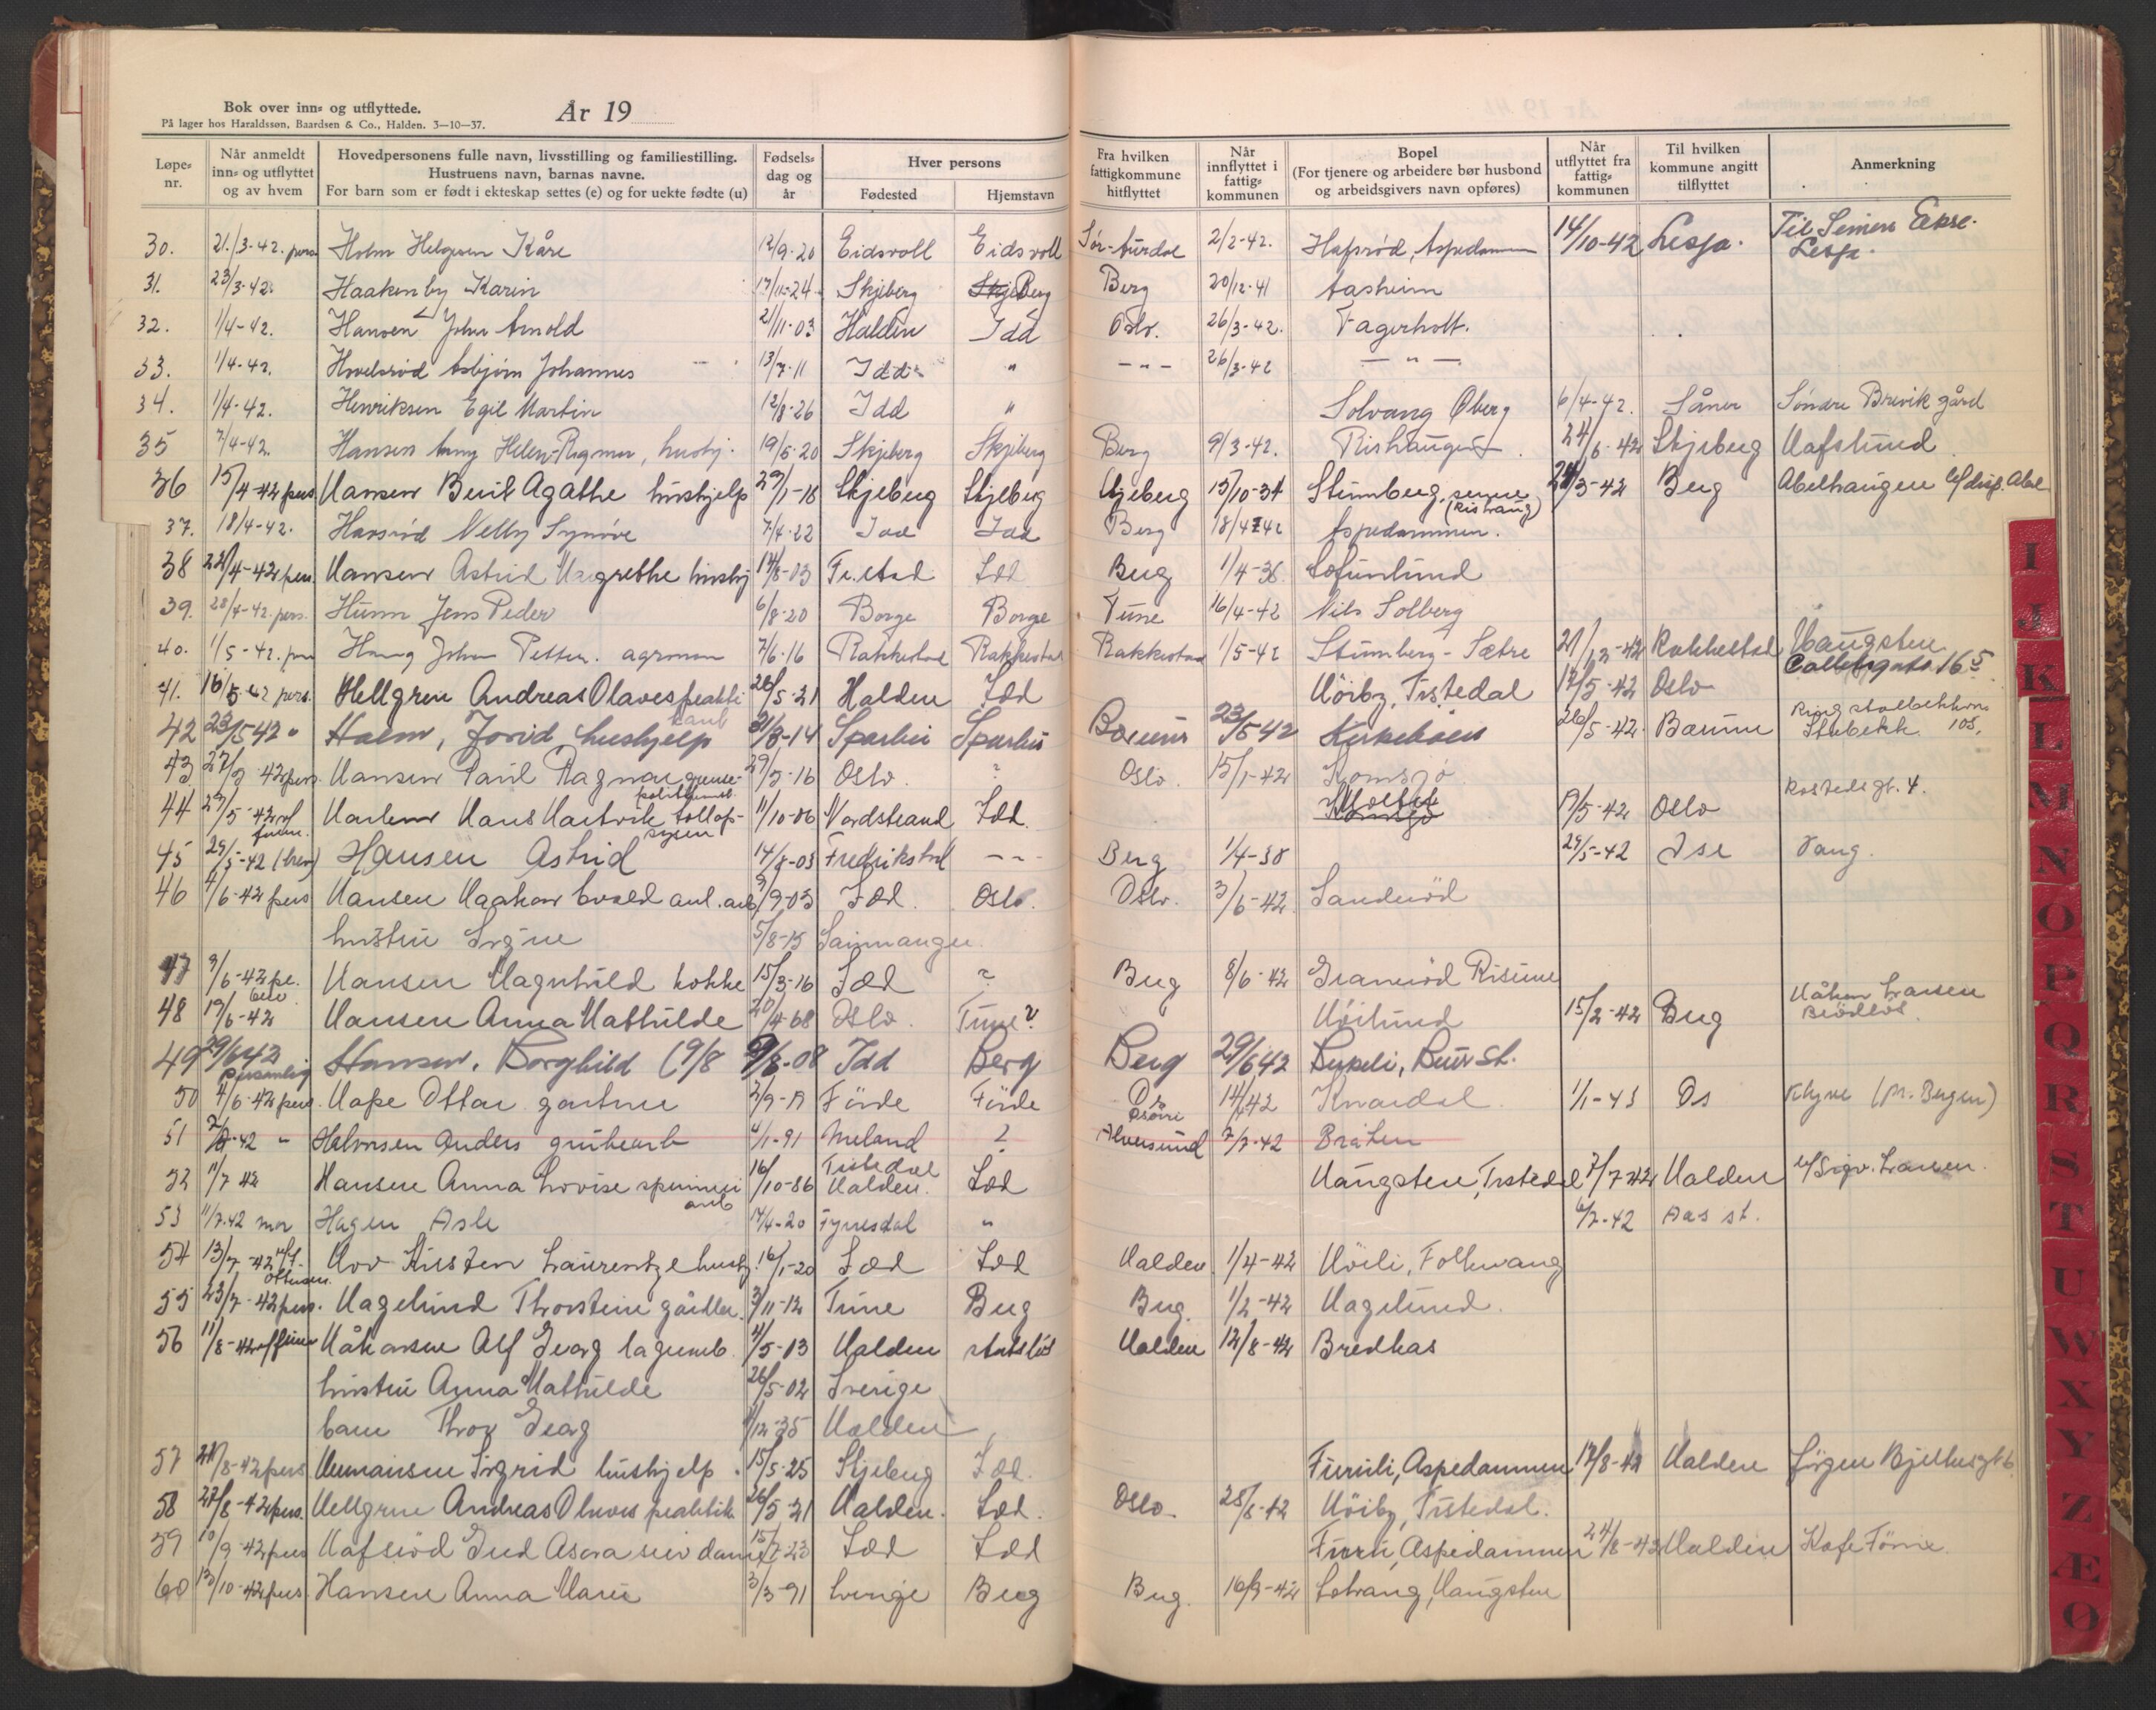 Bok over inn- og utflyttede.
På lager hos Haraldssøn, Baardsen & Co., Halden. 3—10—37.
År 19
Løpe-nr.
Når anmeldt inn- og utflyttet og av hvem
Hovedpersonens fulle navn, livsstilling og familiestilling. Hustruens navn, barnas navne. For barn som er født i ekteskap settes (e) og for uekte fødte (u)
Fødsels-dag og år
Hver persons
Fødested
Hjemstavn
Fra hvilken fattigkommune hitflyttet
Når innflyttet i fattig-kommunen
Bopel (For tjenere og arbeidere bør husbond og arbeidsgivers navn opføres)
Når utflyttet fra fattig-kommunen
Til hvilken kommune angitt tilflyttet
Anmerkning
30. 21./3-42. pers Holm Helgesen Kåre 12/9-20 Eidsvoll Eidsvoll Sør-Aurdal 2/2-42. Hafsrød, Aspedammen 14/10-42 Lesja. Til Lesja.
31. 23/3-42. Haakenby Karin 17/11-24 Skjeberg Berg Berg 20/12-41 Aasheim
32. 1/4-42. Hansen John Arnold 2/11-03 Halden Idd Oslo. 26/3-42. Fagerholt.
33. 1/4-42. Hovelsrød Asbjørn Johannes 13/7-11 Idd " - " - 26/3-42 — " —
34. 1/4-42. Henriksen Egil Martin 12/8-26 Idd " Solvang Øberg 6/4-42. Såner Søndre Brevik gård
35 7/4-42. Hansen Helen Ragna, hushj. 19/5-20 Skjeberg Skjeberg Berg 9/3-42. Rishaugen 24/6-42 Skjeberg Hafslund
36 15/4-42 pers Hansen Berit Agathe hushjelp 29/1-18 Skjeberg Skjeberg Skjeberg 15/10-31 Stumberg, (Rishaug) 28/3-42 Berg Abelhaugen
37. 18/4-42. Havsrød Nelly Synøve 7/4-22 Idd Idd Berg 18/4-42 Aspedammen.
38 22/4-42 pers. Hansen Astrid Margrethe hushj 14/8-03 Fr.stad Idd Berg 1/4-38 Lofunlund
39. 28/4-42. pers. Hunn Jens Peder 6/8-20 Borge Borge Tune 16/4-42 Nils Solberg
40. 1/5-42. pers Haug Johan Petter. agronom 7/6-16 Rakkestad Rakkestad Rakkestad 1/5-42 Stumberg - Sætre 21/12-42 Rakkestad Haugsten
41. 16/5-42 pers. Hellgren Andreas Olaves praktik 26/5-21 Halden Idd Høiby, Tistedal 17/5-42 Oslo 16 5
42 23/5-42 " Holm, Jorid hushjelp 31/8-14 Sparbu Sparbu Bærum 23/5-42 Kirkebøen 26/5-42. Bærum Stabekk 105.
43 27/5-42 pers. Hansen Paul Ragnar grense-politibetj. 29/3-16 Oslo. ? Oslo. 15/1-42 Kornsjø
44 27/5-42 Hans Hartvik tollop-synsm 11/10-06 Nordstrand Idd. 19/5-42 Oslo Rostedsgt. 4.
45 29/5-42 (brev) Hansen Astrid 14/8-03 Fredrikstad - - - Berg 1/4-38 29/5-42 Ise Vang.
46 4/6-42 pers Hansen Haakon Evald anl. arb. 9/9-03 Idd. Oslo. Oslo. 3/6-42 Sanderød
hustru Signe 5/8-15 Samnanger.
47 9/6-42 pe. Hansen Magnhild kokke 15/3-16 Idd ? Berg 8/6-42 Granerød Risum
48 19/6-42 Hansen Anna Mathilde 20/4-68 Oslo. Tune? Høilund 15/2-42 Berg Håkon Larsen Brødløs.
49 29/6 42 personlig Hansen, Borghild (9/8 9/8-08 Idd Berg Berg 29/6 42 Buer St.
50 4/6-42 pers. Hope Ottar gartner 2/9-19 Förde Förde Os 14/42 Knardal 1/1-43 Os (pr. Bergen)
51 7/7-42 " Halvorsen Anders grubearb 4/1-91 Meland ? Alversund 7/7-42 Bråten
52 11/7 42 Hansen Anna Lovise spinneri arb 16/10-86 Tistedal Halden. Idd Haugsten, Tistedal 7/7-42 Halden c/o Sigv. Larsen.
53 11/7-42 mor Hagen Asle 14/4-20 Fyresdal " 6/7-42 Aas st.
54 13/7-42 Ottesen Hov Kirsten Laurentze hushj. 16/1-20 Idd Idd Halden 1/4-42 Høili, Folkvang
55 23/7-42 pers. Hagelund Thorstein gårdbr. 3/11-12 Tune Berg Berg. 1/2-42 Hagelund.
56 11/8-42 Håkansen Alf Georg lagerarb. 4/5-03 Halden statsløs Halden 12/8-42 Bredkas
hustru Anna Mathilde 26/5-02 Sverige
barn Thor Georg 1/12-35 Halden
57 21/8-42 pers Hermansen Sigrid hushjelp. 15/5-25 Skjeberg Idd. Furuli, Aspedammen 12/8-42 Halden Jørgen Bjelkesgt 6.
58 27/8-42 pers. Hellgren Andreas Olaves praktik 26/5-21 Halden. Idd. Oslo. 25/8-42 Høiby, Tistedal.
59 10/9-42 pers Hafsrød Gud Asora serv dame 15/7-23 Idd Idd Furu, Aspedammen 24/8-42 Halden Kafe Tønne.
60 13/10-42 pers. Hansen Anna Marie 3/3-91 Sverige Berg Berg. 16/9-42 Solvang, Haugsten
I
J
K
L
M
N
O
P
Q
R
S
T
U
W
X
Y
Z
Æ
Ø